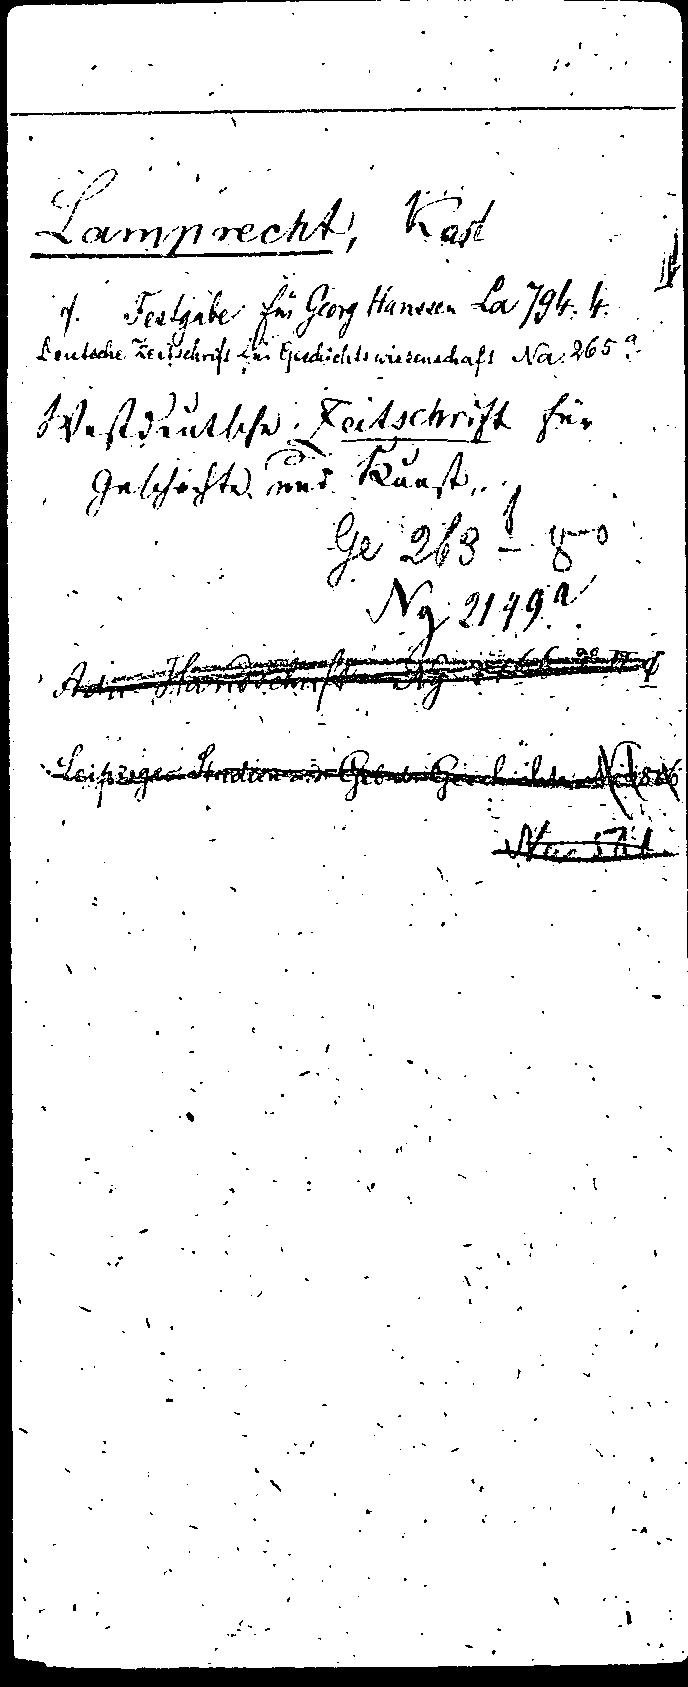 Lamprecht, Karl
s. Festgabe für Georg Hanssen La 794. 4.
Deutsche Zeitschrift für Geschichtswissenschaft Na. 265 a.
Westdeutsche Zeitschrift für
Geschichte und Kunst.
Ge 263 f – 8vo
Ng 2149 a
Ada Handschrift
Leipziger Studien a. d. Geb. d. Geschichte